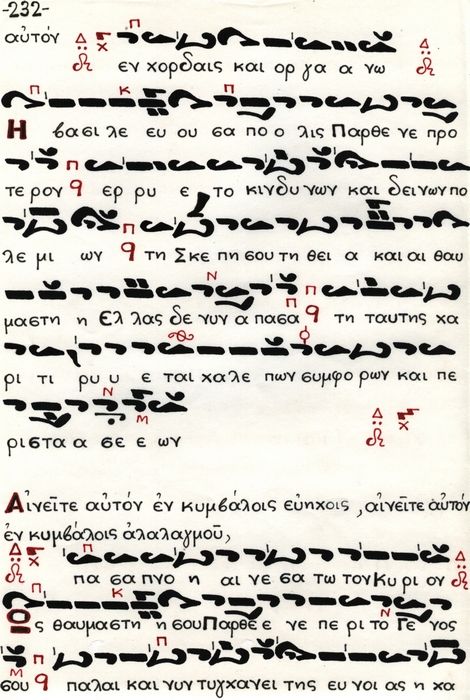 -232-
αὐτόν
εν χορδαις και ορ γα α νω
Η βασι λε ευ ου σα πο ο λις Παρθε νε προ
τε ρον ερ ρυ ε το κινδυνων και δεινων πο
λε μι ων τη Σκε πη σου τη θει α και αι θαυ
μαστη η Ελ λας δε νυν α πασα τη ταυτης χα
ρι τι ρυ υ ε ται χαλε πων συμφο ρων και πε
ριστα α σε ε ων
Αἰνεῖτε αὐτόν ἐν κυμβάλοις εὐηχοις, αἰνεῖτε αὐτόν
ἐν κυμβάλοις ἀλαλαγμοῦ,
πα σα πνο η αι νε σα τω τον Κυ ρι ον
Ος θαυμαστη η σου Παρθε ε νε πε ρι το Γε νος
σου παλαι και νυν τυγχανει της ευ νοι ας η χα